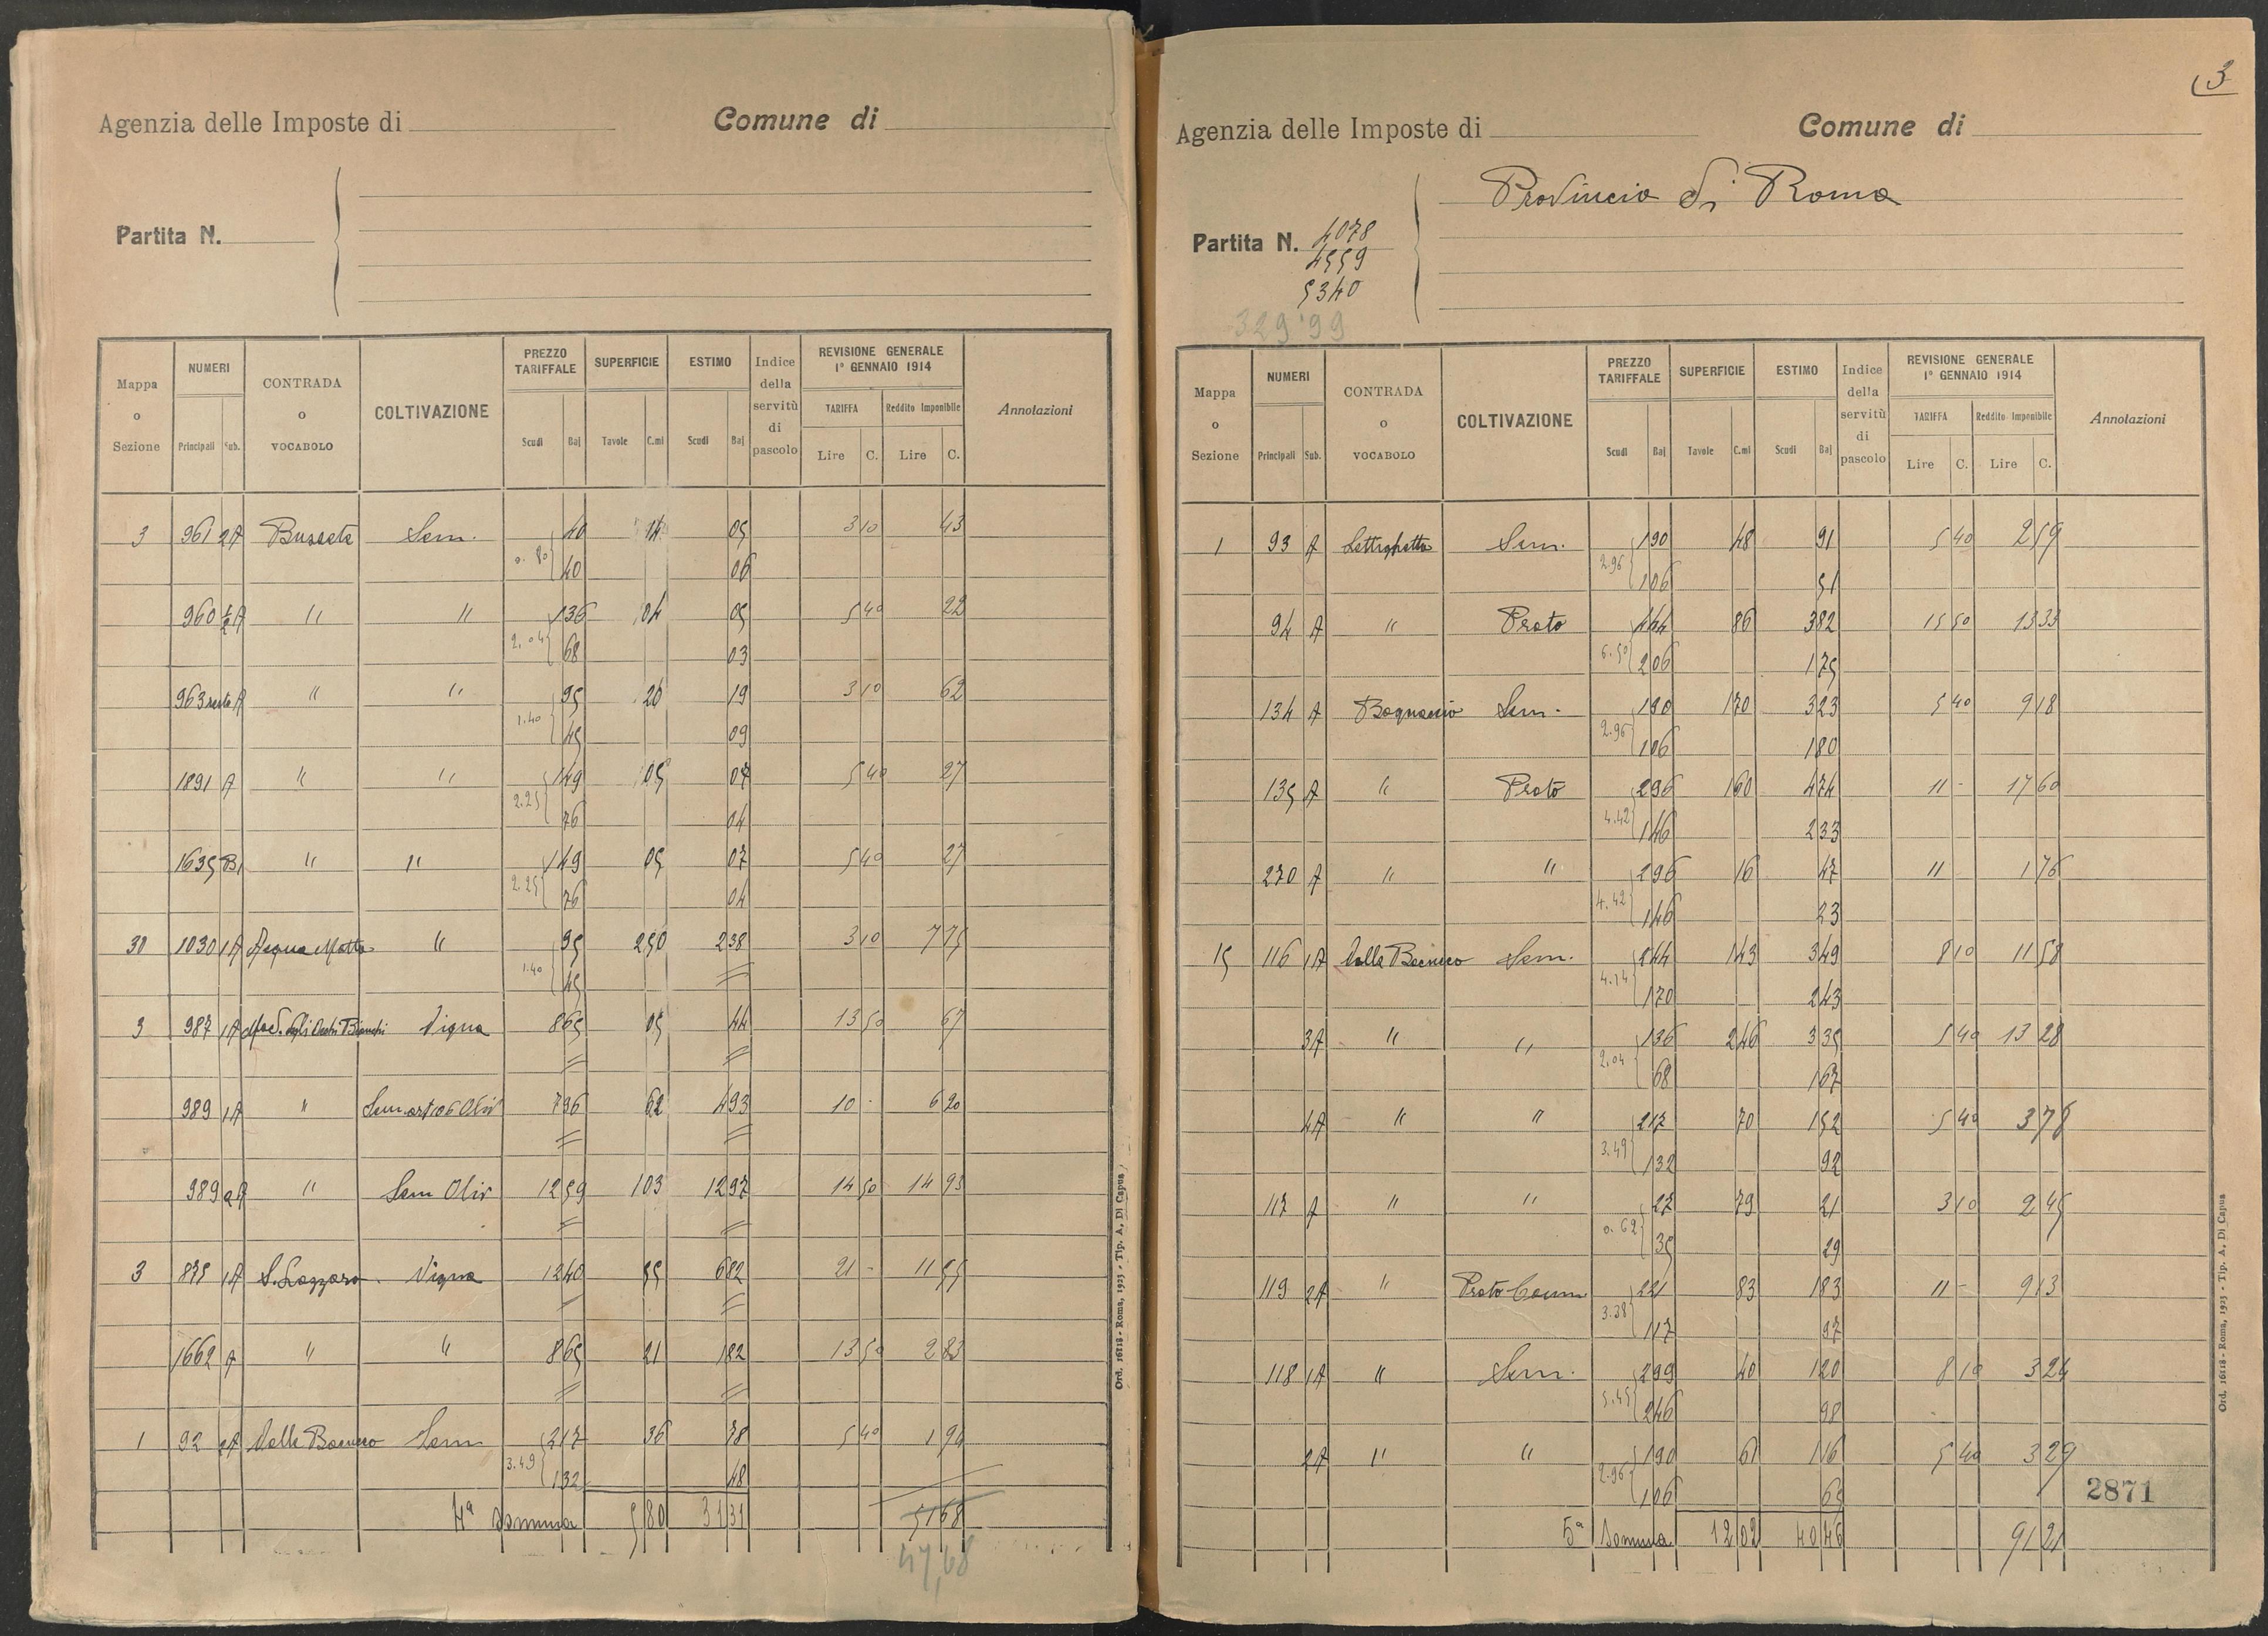 Agenzia delle Imposte di Comune di
Partita N.
Mappa o Sezione NUMERI Principali Sub. CONTRADA o VOCABOLO COLTIVAZIONE PREZZO TARIFFALE Scudi Baj SUPERFICIE Tavole C.mi ESTIMO Scudi Baj Indice della servitù di pascolo REVISIONE GENERALE 1° GENNAIO 1914 TARIFFA Lire C. Reddito Imponibile Lire C. Annotazioni
3 961 2A Sem. 40 14 05 3 10 43
0.80 40 06
960 A " " 136 04 05 5 40 22
2.04 68 03
963 resto A " " 95 20 19 3 10 62
1.40 45 09
1891 A " " 149 05 07 5 40 27
2.25 76 04
1635 B1 " " 149 05 07 5 40 27
2.25 76 04
30 1030 1A Acqua Matta " 95 250 238 3 10 7 75
1.40 45
3 987 1A Mad. degli Occhi Bianchi Vigna 865 05 44 13 50 67
989 1A " 796 62 493 10 - 6 20
989 2A " Sem Oliv 1259 103 1297 14 50 14 93
3 835 1A S. Lazzaro Vigna 1240 55 682 21 - 11 55
1662 A " " 865 21 182 13 50 2 83
1 92 2A Valle Sem 217 36 78 5 40 1 94
3.49 132 48
4a Somma 5 80 31 31 51 68
47,68
Ord. 16118 - Roma, 1923 - Tip. A. Di Capua
3
Agenzia delle Imposte di Comune di
Provincia di Roma
Partita N. 4078
4559
5340
329.99
Mappa o Sezione NUMERI Principali Sub. CONTRADA o VOCABOLO COLTIVAZIONE PREZZO TARIFFALE Scudi Baj SUPERFICIE Tavole C.mi ESTIMO Scudi Baj Indice della servitù di pascolo REVISIONE GENERALE 1° GENNAIO 1914 TARIFFA Lire C. Reddito Imponibile Lire C. Annotazioni
1 93 A Sem. 190 48 91 5 40 2 59
2.96 106 51
94 A " Prato 444 86 382 15 50 13 33
6.50 206 175
134 A Sem. 190 170 323 5 40 9 18
2.96 106 180
135 A " Prato 296 160 474 11 - 17 60
4.42 146 233
270 A " " 296 16 47 11 1 76
4.42 146 23
15 116 1A Valle Sem. 244 143 349 8 10 11 58
4.14 170 243
3A " " 136 246 335 5 40 13 28
2.04 68 167
4A " " 217 70 152 5 40 3 78
3.49 132 92
117 A " " 27 79 21 3 10 2 45
0.62 35 29
119 2A " Prato 221 83 183 11 - 9 13
3.38 117 97
118 1A " Sem. 299 40 120 8 10 3 24
5.45 246 98
2A " " 190 61 116 5 40 3 29
2.96 106 65
2871
5a Somma 12 02 40 46 91 21
Ord. 16118 - Roma, 1923 - Tip. A. Di Capua